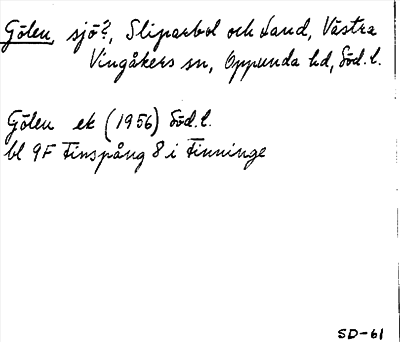 Gölen, sjö?, Sliparbol och Sand, Västra
Vingåkers sn, Oppunda hd, Söd.l.
Gölen ek (1956) Söd.l.
bl 9F Finspång 8 i Finninge
SD-61